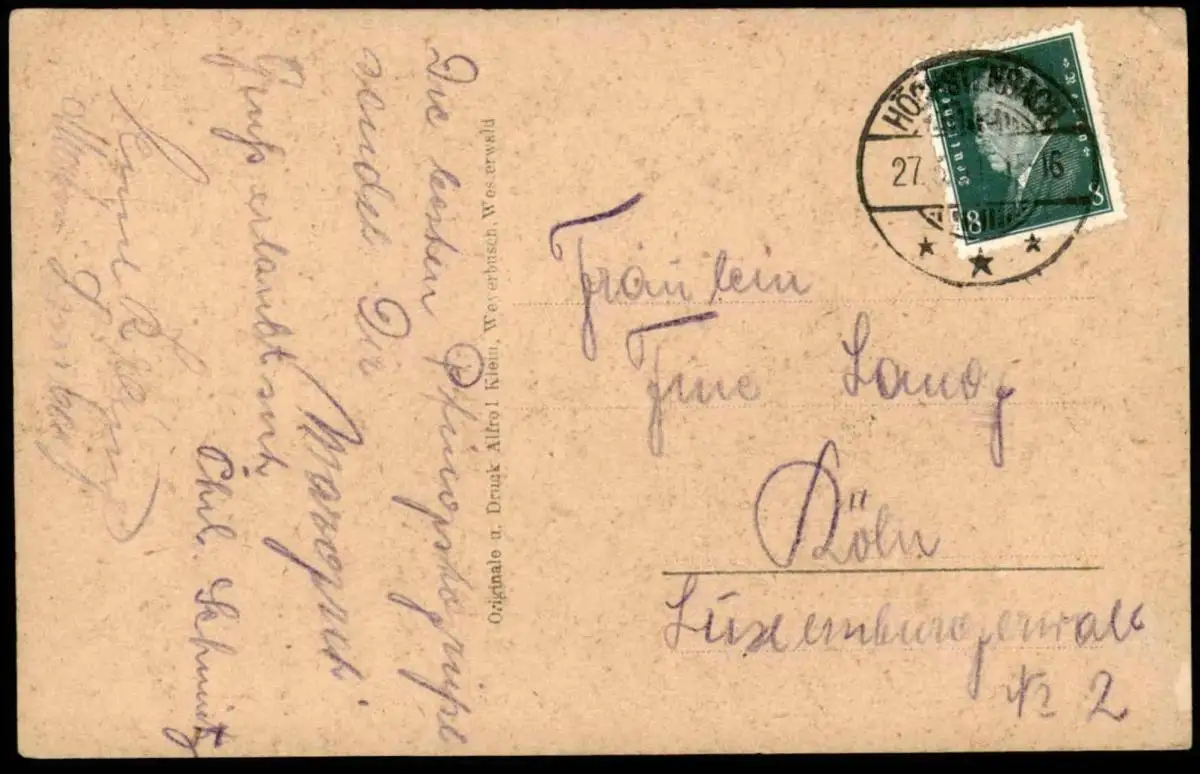 Die besten Pfingstgrüße
sendet Dir
Margret.
Gruß erlaubt sich
Phil. Schmitz
Originale u. Druck Alfred Klein, Weyerbusch, Westerwald
HÖCHSTENBACH
27. 16
Deutsches Reich
8 8
Fräulein
Fine Lang
Köln
Luxemburgerwall
Nr 2